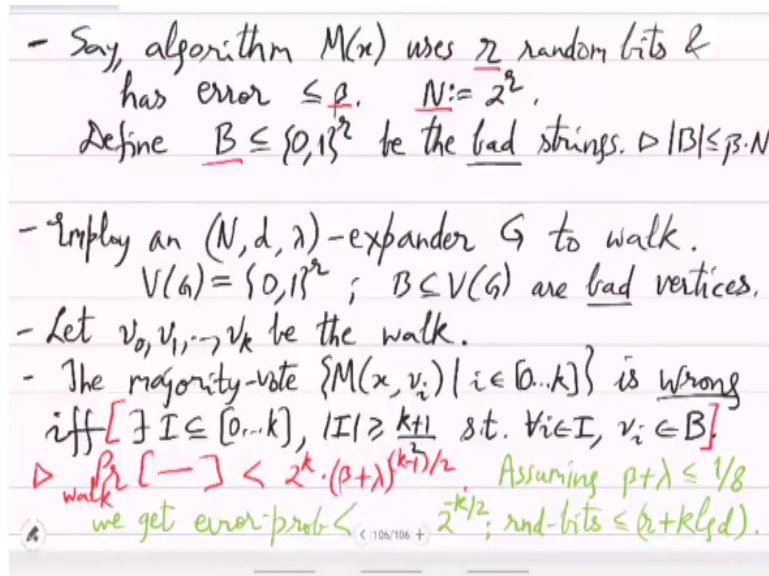 - Say, algorithm M(x) uses r random bits &
has error ≤ β. N := 2^r.
Define B ⊆ {0,1}^r be the bad strings. ▷ |B| ≤ β·N
- Employ an (N, d, λ)-expander G to walk.
V(G) = {0,1}^r ; B ⊆ V(G) are bad vertices.
- Let v₀, v₁, .., v_k be the walk.
- The majority-vote {M(x, v_i) | i ∈ [0...k]} is wrong
iff [∃ I ⊆ [0...k], |I| ≥ (k+1)/2 s.t. ∀i∈I, v_i ∈ B].
▷ Pr_walk [—] < 2^k · (β+λ)^{(k-1)/2}. Assuming β+λ ≤ 1/8
we get error-prob < 2^{-k/2}; rnd-bits ≤ (r+klgd).
< 106/106 +